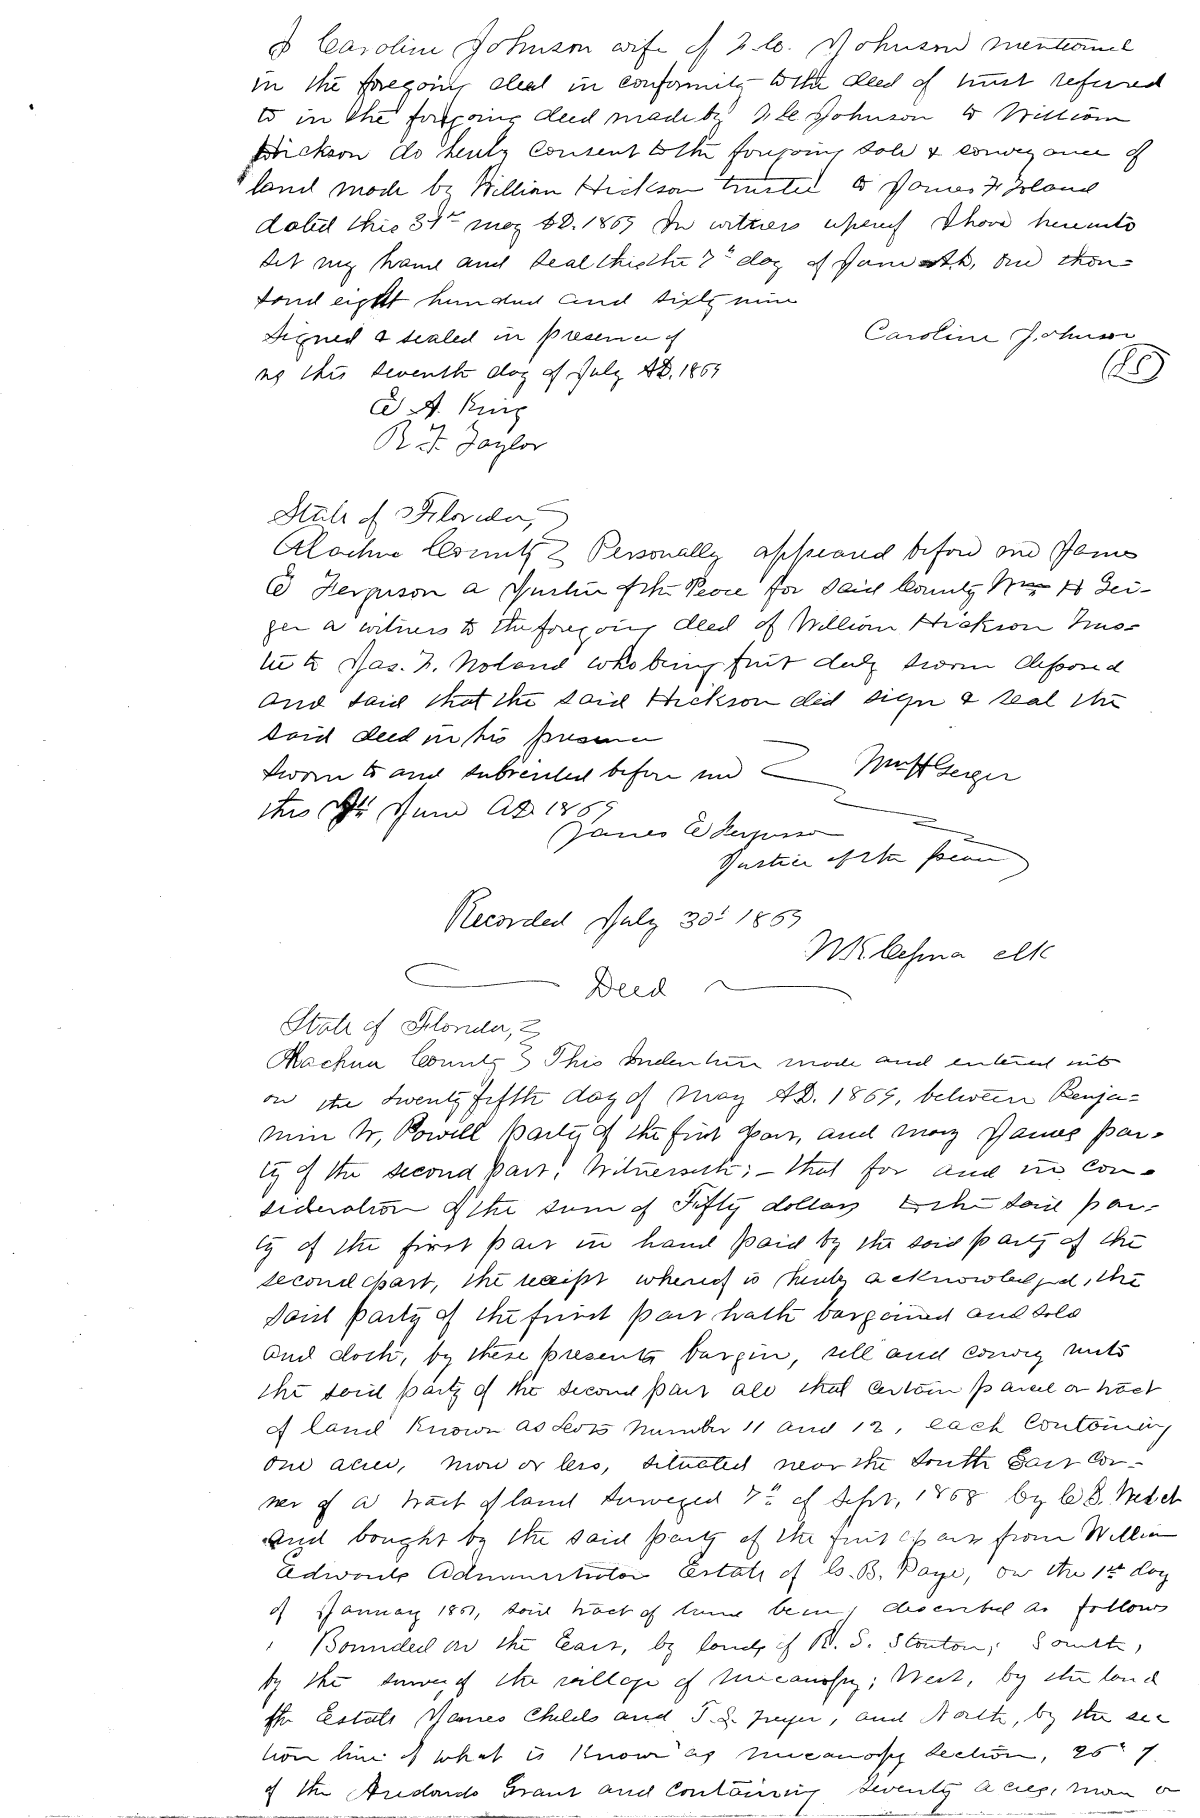 I Caroline Johnson wife of Johnson mentioned
in the foregoing deed in conformity to the deed of trust referred
to in the forgoing deed made by Johnson to William
Hickson do hereby consent to the foregoing sale & conveyance of
land made by William Hickson trustee to James F Noland
dated this 31st may AD. 1869 In witness whereof I have hereunto
set my hand and seal this the 7th day of June A.D. one thou=
sand eight hundred and sixty nine
Signed & sealed in presence of Caroline Johnson
us this seventh day of July AD. 1869 (LS)
E A. King
R F. Taylor
State of Florida,
Alachua County Personally appeared before me James
E Ferguson a Justice of the Peace for said County Wm H Gei-
ger a witness to the foregoing deed of William Hickson Trus=
tee to Jas. F. Noland who being first duly sworn deposed
and said that the said Hickson did sign & seal the
said deed in his presence
Sworn to and subscribed before me Wm H Geiger
this June AD 1869
James E Ferguson
Justice of the peace
Recorded July 30th 1869
clk
Deed
State of Florida,
Alachua County This Indenture made and entered into
on the twenty fifth day of may AD. 1869, between Benja=
min W, Powell party of the first part, and mary James par=
ty of the second part; Witnesseth;- that for and in con=
sideration of the sum of Fifty dollars to the said par-
ty of the first part in hand paid by the said party of the
second part, the receipt whereof is hereby acknowledged, the
said party of the first part hath bargained and sold
and doth, by these presents bargin, sell and convey unto
the said party of the second part all that certain parcel or tract
of land known as Lots number 11 and 12, each containing
one acre, more or less, situated near the South East cor=
ner of a tract of land surveyed 7th of Sept, 1868 by
and bought by the said party of the first part from William
Edwards Administrator Estate of B. Page, on the 1st day
of January said tract of land being described as follows
Bounded on the East, by lands of R. S. Stouton; South,
by the survey of the village of Micanopy; West, by the land
of the Estate James Childs and and North, by the sec
tion line of what is know as micanopy section, 26
of the Aredondo Grant and containing seventy acres, more or